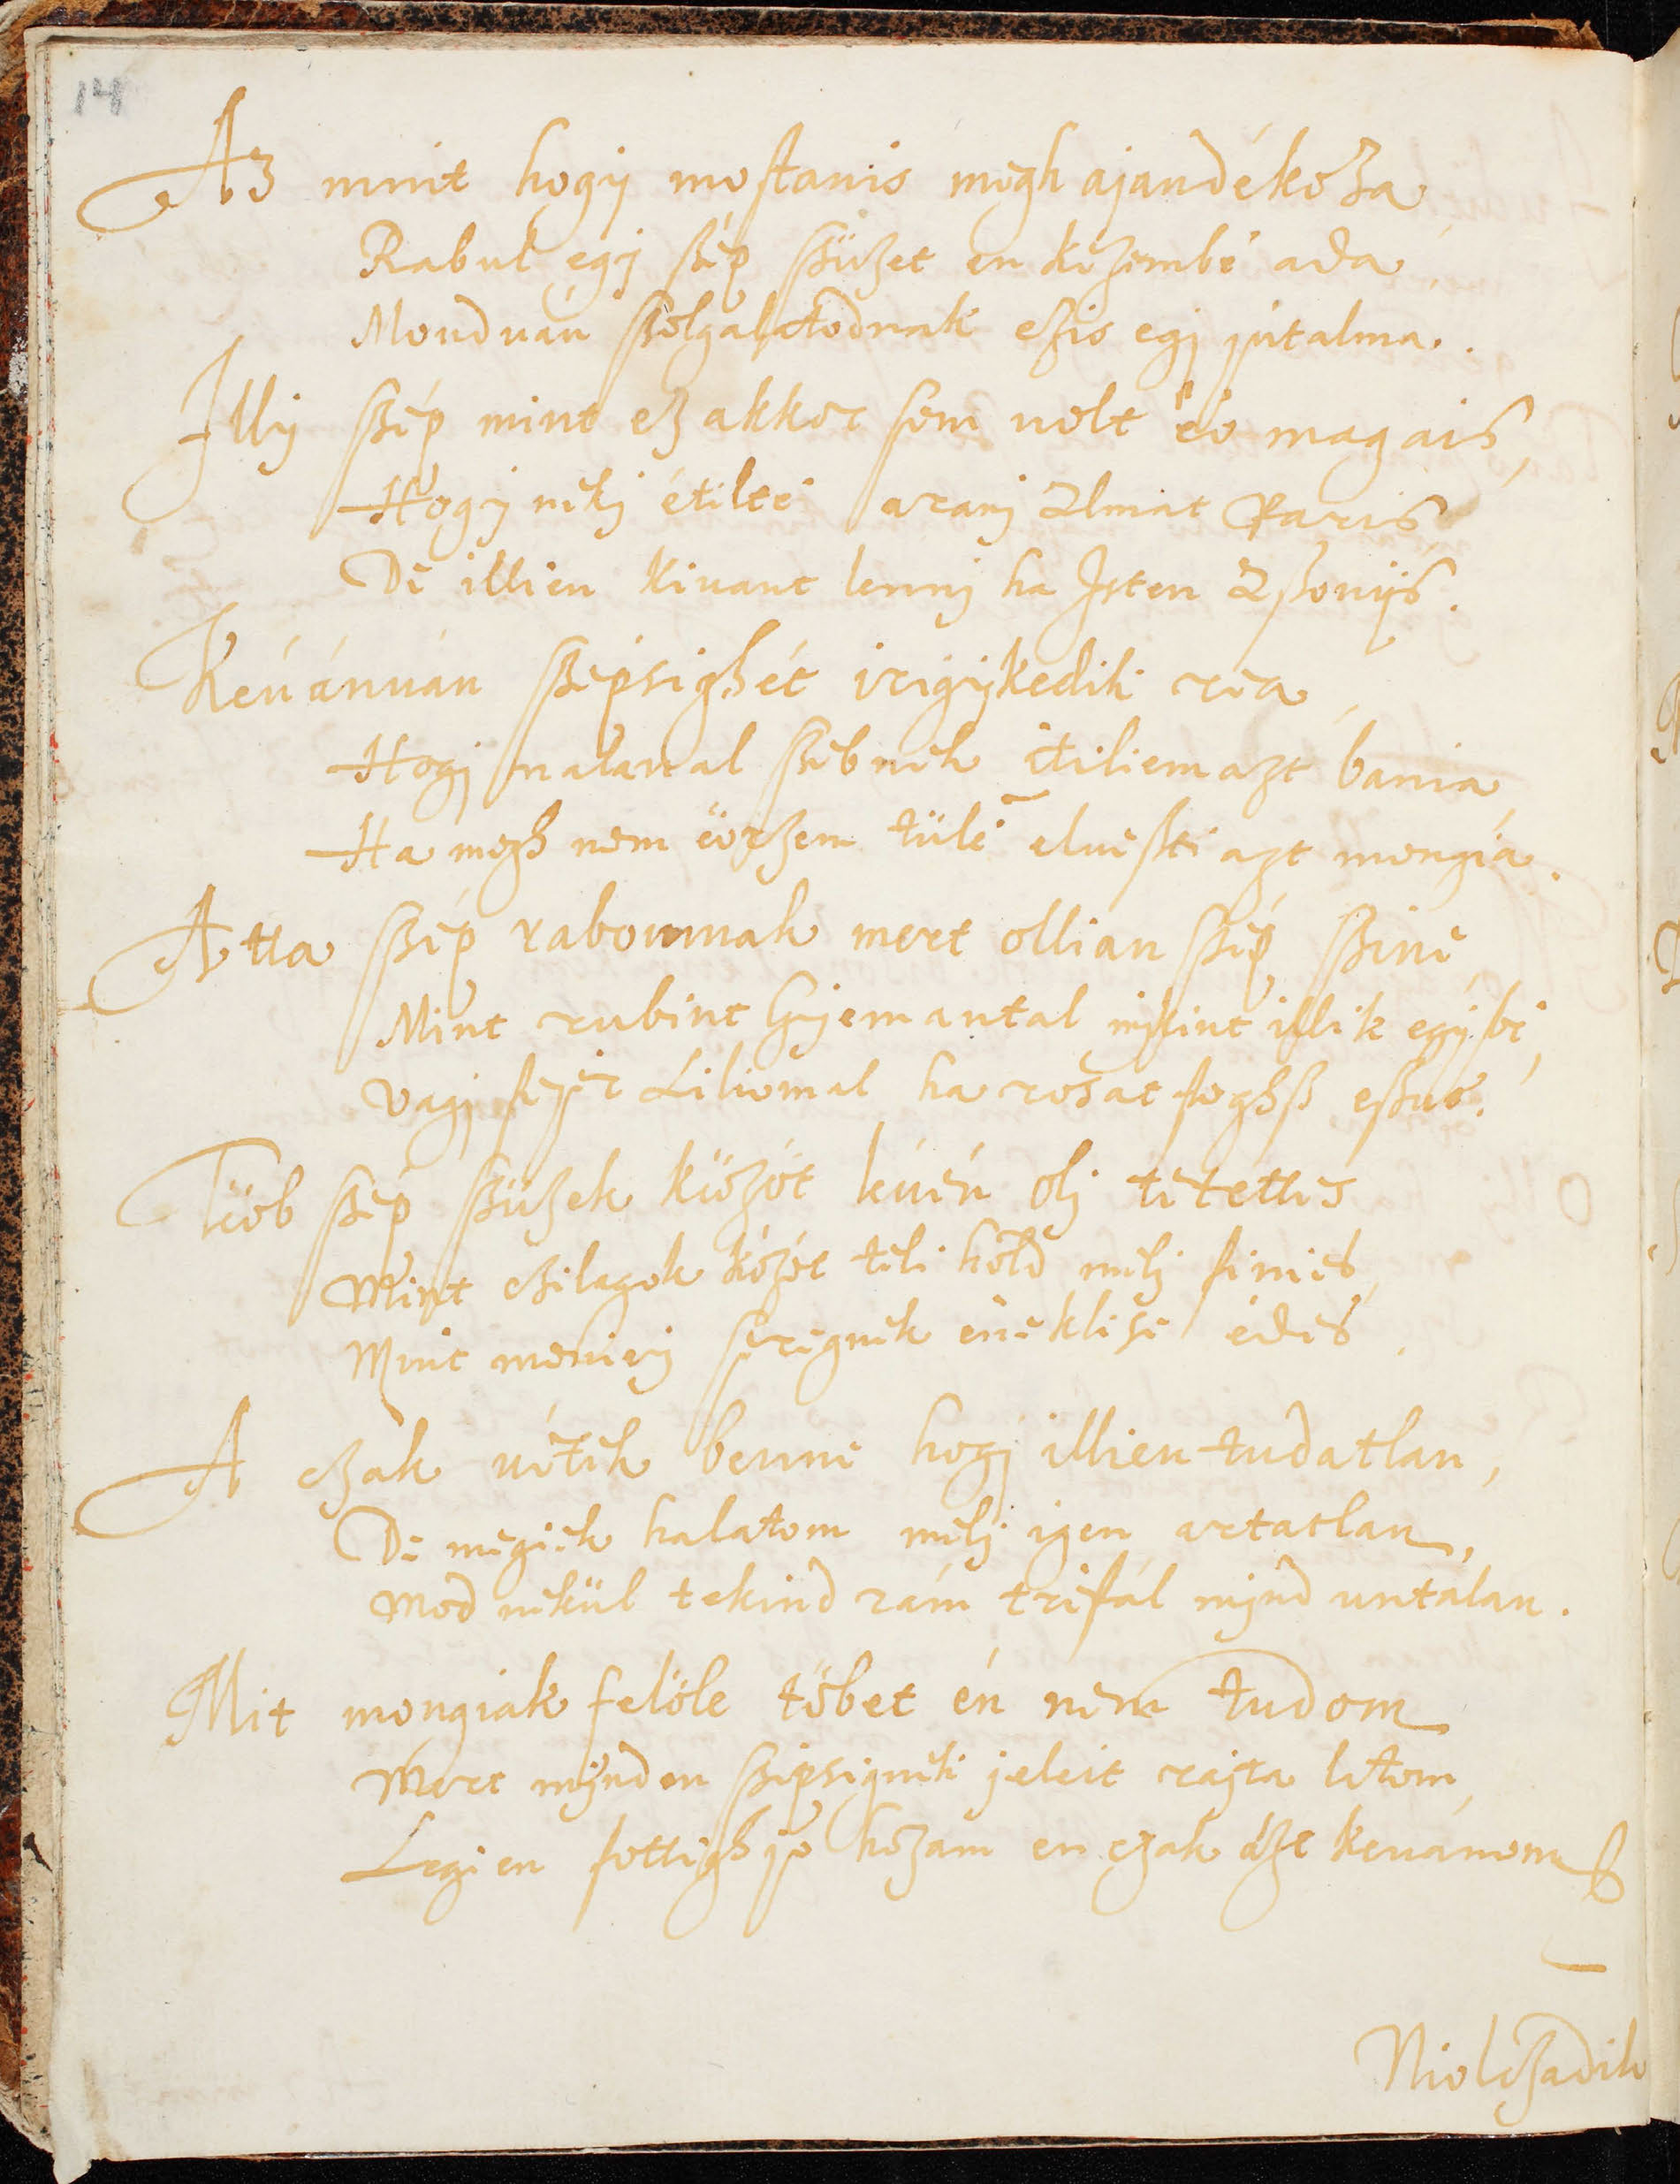 14
Az mint hogy moſtanis megh ajandékoza
Rabul egy ſzép ſzüzet én kezembe ada
Monduán ſzolgalatodnak ezis egy jútalma.
Illy ſzép mint ez akkor ſem uolt eó magais,
Hogy neky étilte arany Almat Paris
De illien kiuant lenny ha Iſten Aſzonyis.
Keuánuán ſzépsighét irigykedik réa,
Hogy nalanal ſzebnek itiliem azt bania,
Ha megh nem eórzem tüle elueſzti azt mongia.
Atta ſzép rabomnak mert ollian ſzép ſzine,
Mint rubint Gyemantal mikint illik egybe,
Vagy feyér Liliomal ha rosat foghſz eſzue.
Teób ſzép ſzüzek közöt léuén oly tetettes
Mint czilagok közöt teli hold mely fenies,
Mint meniey ſeregnek éneklise édes.
A czak uétek benne hogy illien tudatlan,
De megiek halatom mely igen artatlan,
Mod nékül tekind rám trefál mynd untalan.
Mit mongiak felöle töbet én nem tudom
Mert mynden ſzipsignek jeleit rajta latom,
Legien ſottigh jo hozam en czak ázt keuánom
Niolczadik